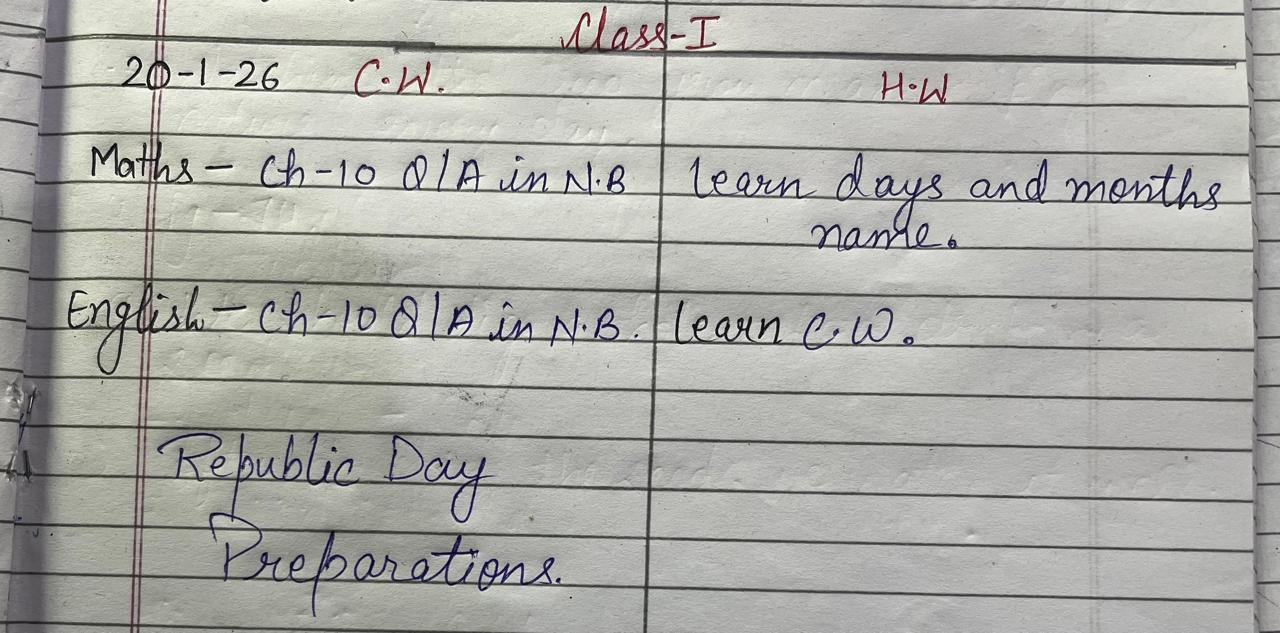 Class-I
20-1-26 C.W. H.W
Maths - Ch-10 Q/A in N.B learn days and months
name.
English - Ch-10 Q/A in N.B. learn C.W.
Republic Day
Preparations.